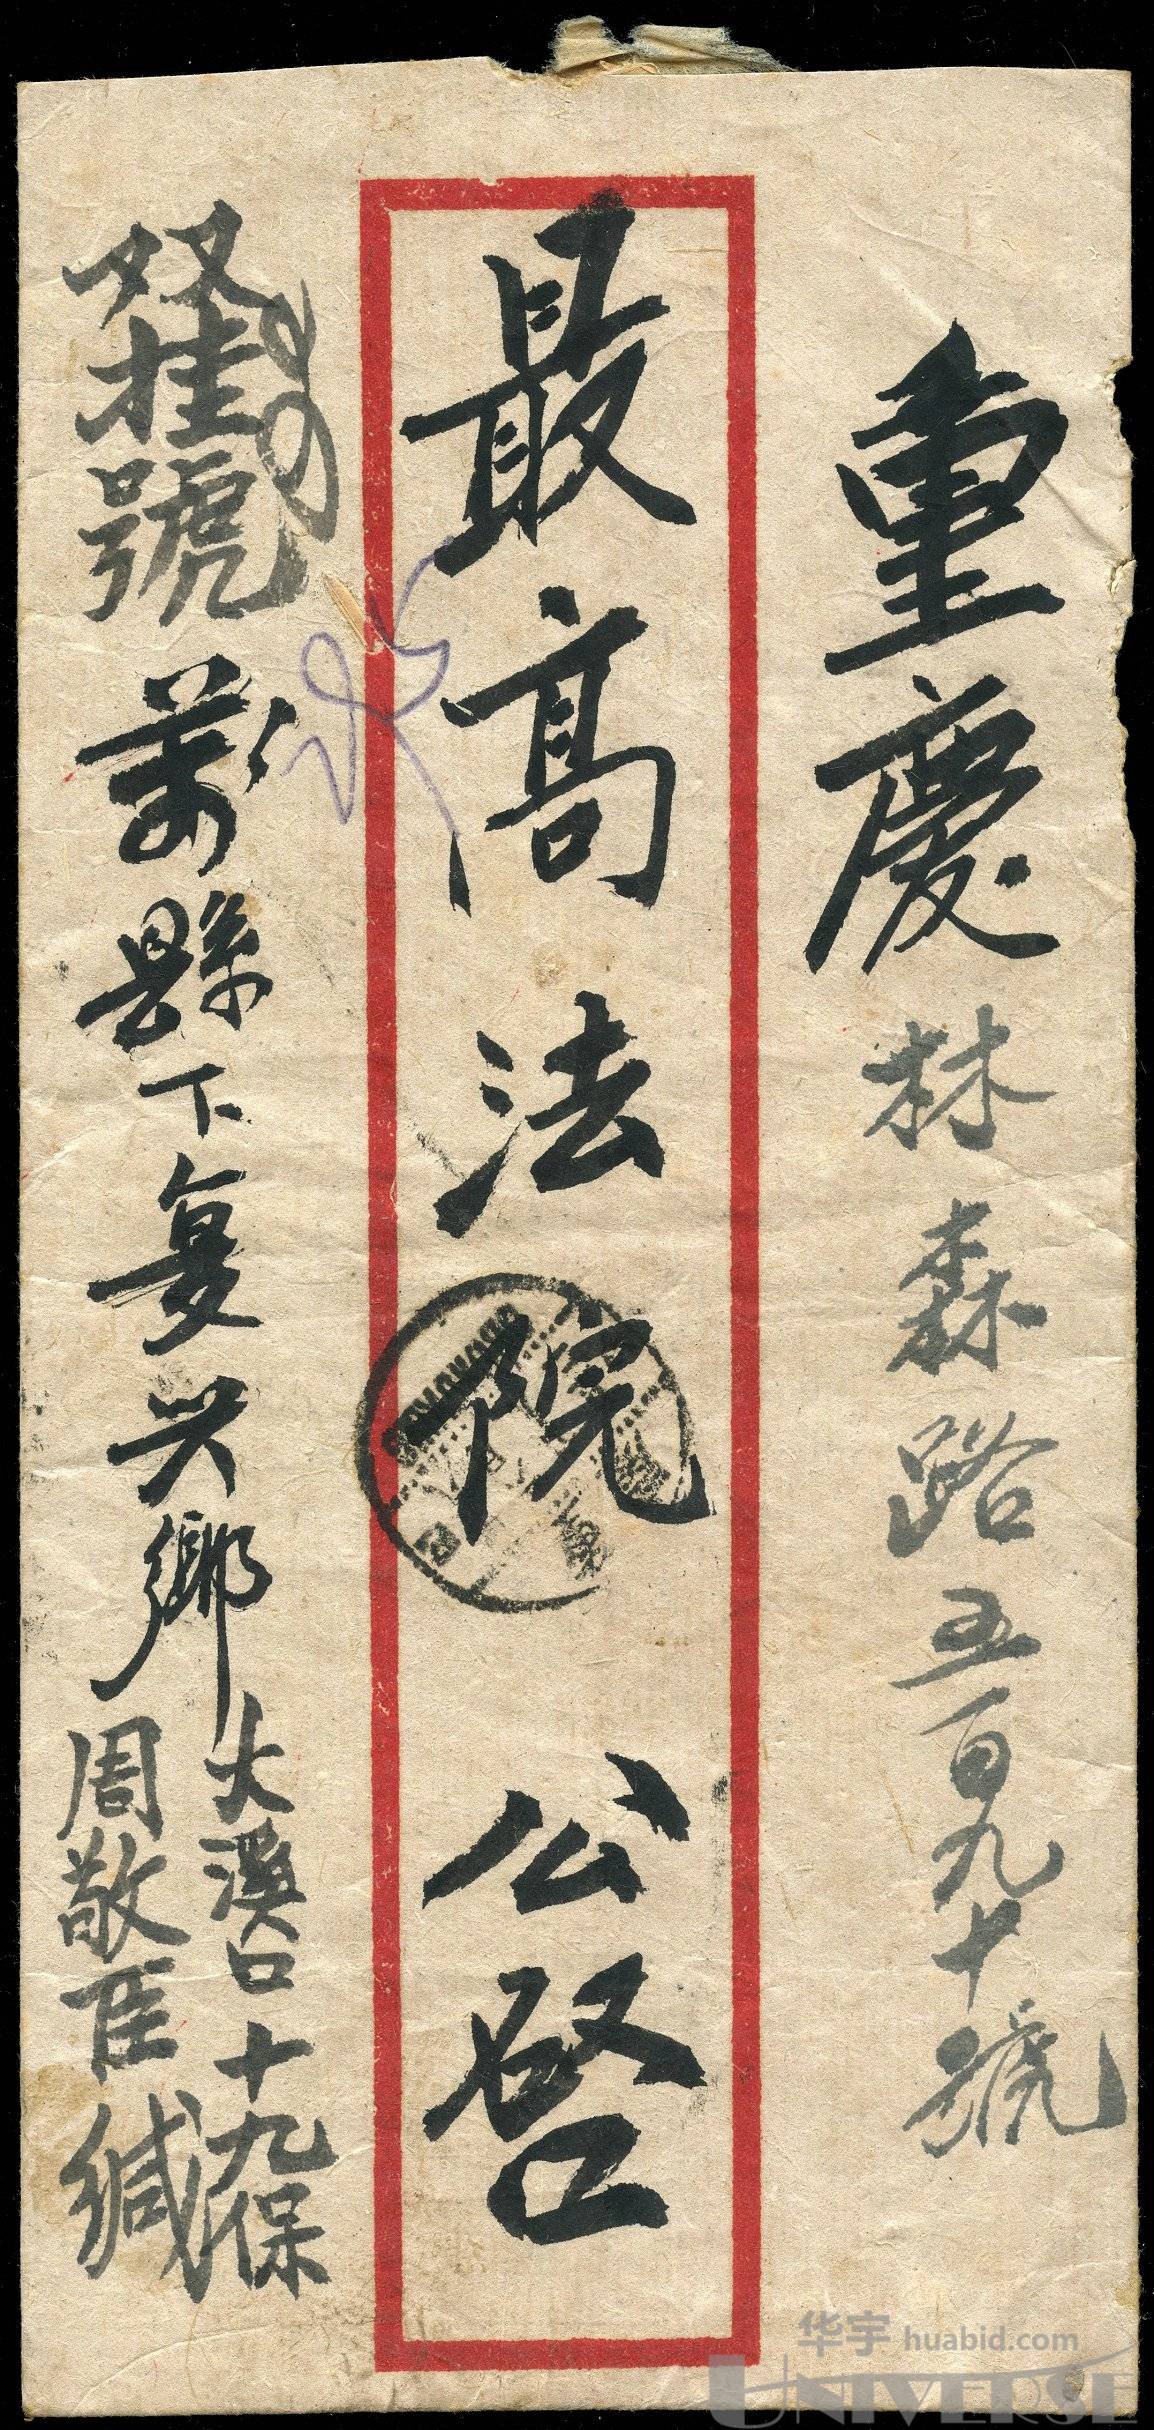 重慶林森路五百九十號
最高法院 公啓
双挂號
萬縣下复兴鄉
大溪口十九保
周敬臣缄
华宇 huabid.com
UNIVERSE